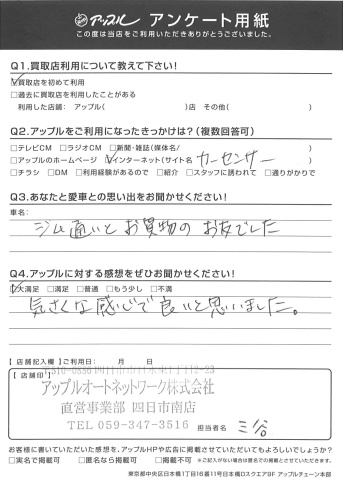 アップル アンケート用紙
この度は当店をご利用いただきありがとうございました。
Q1.買取店利用について教えて下さい!
☑買取店を初めて利用
□過去に買取店を利用したことがある
利用した店舗: アップル( )店 その他( )
Q2.アップルをご利用になったきっかけは?(複数回答可)
□テレビCM □ラジオCM □新聞・雑誌(媒体名 )
□アップルのホームページ ☑インターネット(サイト名 カーセンサー )
□チラシ □DM □利用経験があるので □紹介 □スタッフに誘われて □通りがかりで
Q3.あなたと愛車との思い出をお聞かせください!
車名:
ジム通いとお買物のお友でした
Q4.アップルに対する感想をぜひお聞かせください!
☑大満足 □満足 □普通 □もう少し □不満
気さくな感じで良いと思いました。
【店舗記入欄】ご利用日: 年 月 日
【店舗印】
アップルオートネットワーク株式会社
直営事業部 四日市南店
TEL 059-347-3516
担当者名 三谷
お客様に書いていただいた感想を、アップルHPや広告に掲載させていただいてもよろしいでしょうか?
□実名で掲載可 □匿名なら掲載可 □掲載不可 ※ご記入がない場合は匿名での掲載とさせていただきます。
東京都中央区日本橋1丁目16番11号日本橋Dスクエア9F アップルチェーン本部